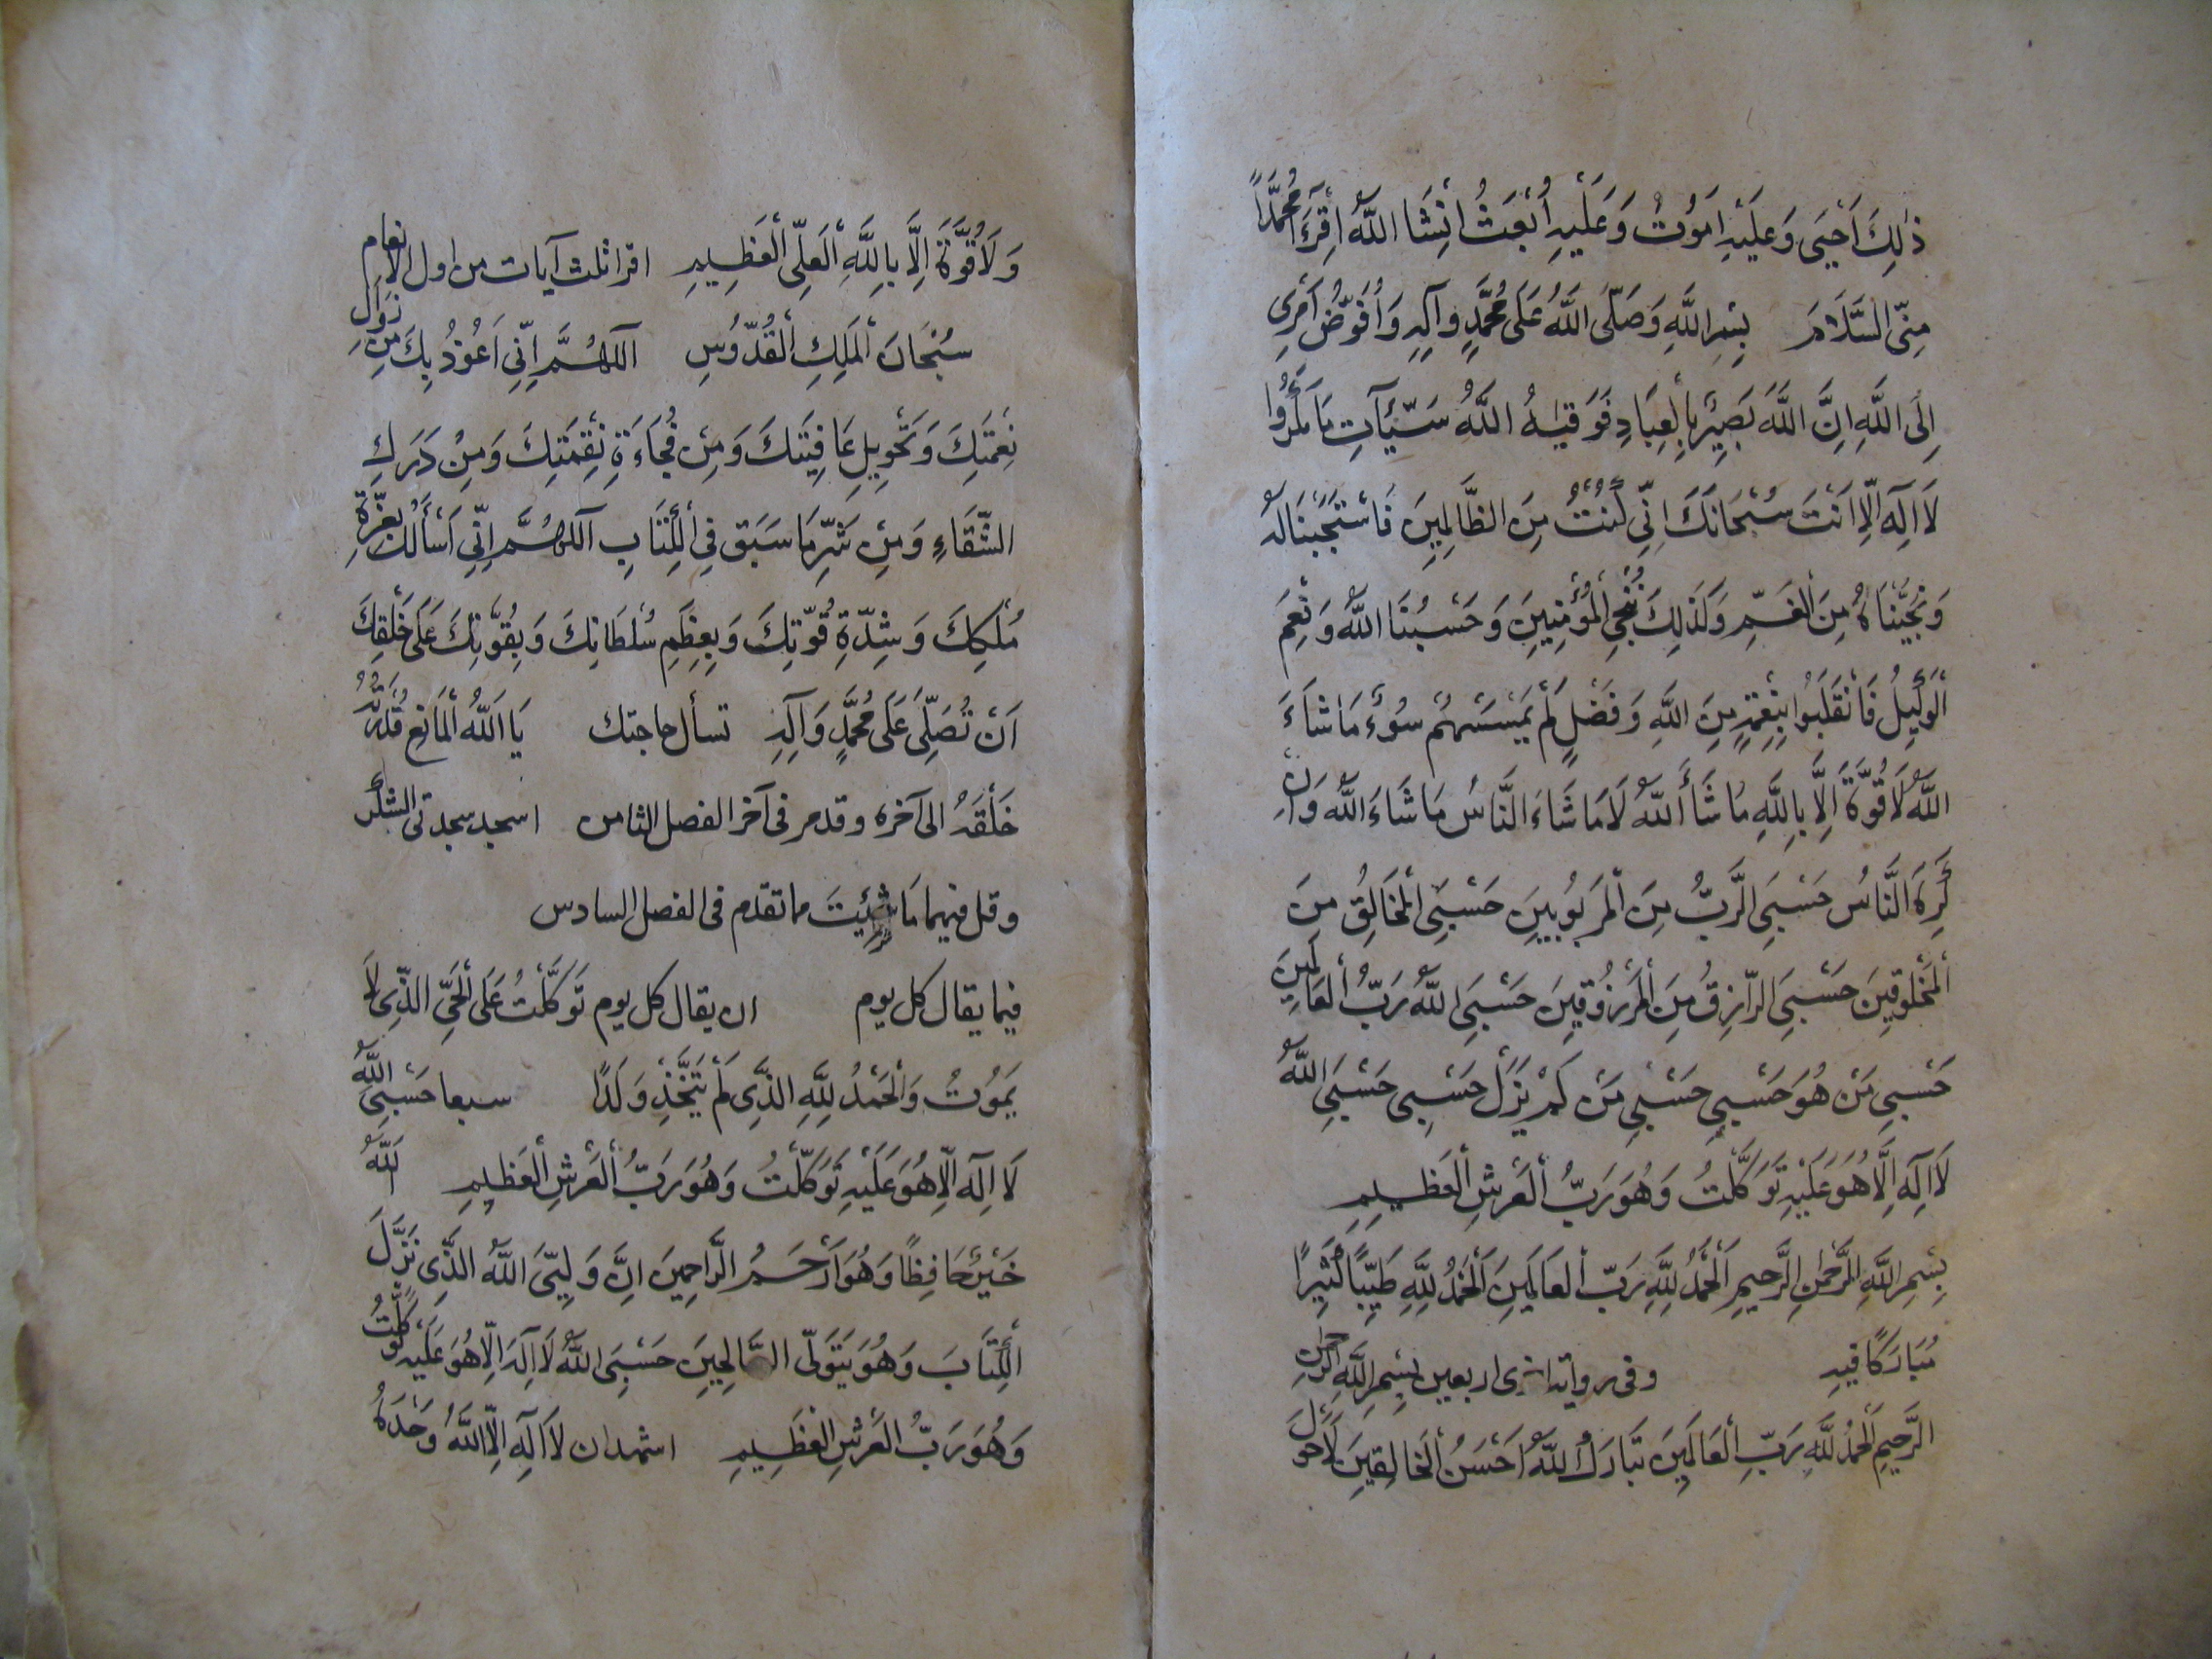 ذٰلِكَ اَحْيٰى وَعَلَيْهِ اَمُوْتُ وَعَلَيْهِ اُبْعَثُ انْشَا اللّٰهُ اَقْرِءْ مُحَمَّدًا
مِنِّى السَّلَامَ بِسْمِ اللَّهِ وَصَلَّى اللَّهُ عَلَى مُحَمَّدٍ وَآلِهِ وَاُفَوِّضُ اَمْرِى
اِلَى اللَّهِ اِنَّ اللَّهَ بَصِيْرٌ بِالْعِبَادِ فَوَقٰيهُ اللَّهُ سَيِّئَآتِ مَا مَكَرُوا
لَا اِلَهَ اِلَّا اَنْتَ سُبْحَانَكَ اِنِّى كُنْتُ مِنَ الظَّالِمِيْنَ فَاسْتَجَبْنَا لَهُ
وَنَجَّيْنَاهُ مِنَ الْغَمِّ وَكَذٰلِكَ نُنْجِى الْمُؤْمِنِيْنَ وَحَسْبُنَا اللّٰهُ وَنِعْمَ
الْوَكِيْلُ فَانْقَلَبُوا بِنِعْمَةٍ مِنَ اللَّهِ وَفَضْلٍ لَمْ يَمْسَسْهُمْ سُوْءٌ مَا شَاءَ
اللّٰهُ لَا قُوَّةَ اِلَّا بِاللَّهِ مَا شَاءَ اللّٰهُ لَا مَا شَاءَ النَّاسُ مَا شَاءَ اللّٰهُ وَاِنْ
كَرِهَ النَّاسُ حَسْبِىَ الرَّبُّ مِنَ الْمَرْبُوْبِيْنَ حَسْبِىَ الْخَالِقُ مِنَ
الْمَخْلُوْقِيْنَ حَسْبِىَ الرَّازِقُ مِنَ الْمَرْزُوْقِيْنَ حَسْبِىَ اللّٰهُ رَبُّ الْعَالَمِيْنَ
حَسْبِى مَنْ هُوَ حَسْبِى حَسْبِى مَنْ لَمْ يَزَلْ حَسْبِى حَسْبِىَ اللّٰهُ
لَا اِلَهَ اِلَّا هُوَ عَلَيْهِ تَوَكَّلْتُ وَهُوَ رَبُّ الْعَرْشِ الْعَظِيْمِ
بِسْمِ اللَّهِ الرَّحْمٰنِ الرَّحِيْمِ اَلْحَمْدُ لِلَّهِ رَبِّ الْعَالَمِيْنَ اَلْحَمْدُ لِلَّهِ طَيِّبًا كَثِيْرًا
مُبَارَكًا فِيْهِ وفى رواية اخرى اربعين بِسْمِ اللَّهِ الرَّحْمٰنِ
الرَّحِيْمِ اَلْحَمْدُ لِلَّهِ رَبِّ الْعَالَمِيْنَ تَبَارَكَ اللّٰهُ اَحْسَنُ الْخَالِقِيْنَ لَا حَوْلَ
وَلَا قُوَّةَ اِلَّا بِاللَّهِ الْعَلِىِّ الْعَظِيْمِ اقرا ثلث آيات من اول الانعام
سُبْحَانَ الْمَلِكِ الْقُدُّوْسِ اَللّٰهُمَّ اِنِّى اَعُوْذُ بِكَ مِنْ زَوَالِ
نِعْمَتِكَ وَتَحْوِيْلِ عَافِيَتِكَ وَمِنْ فُجَاءَةِ نِقْمَتِكَ وَمِنْ دَرَكِ
الشَّقَاءِ وَمِنْ شَرِّ مَا سَبَقَ فِى الْكِتَابِ اَللّٰهُمَّ اِنِّى اَسْأَلُكَ بِعِزَّةِ
مُلْكِكَ وَشِدَّةِ قُوَّتِكَ وَبِعِظَمِ سُلْطَانِكَ وَبِقُوَّتِكَ عَلَى خَلْقِكَ
اَنْ تُصَلِّىَ عَلَى مُحَمَّدٍ وَآلِهِ تسأل حاجتك يَا اَللّٰهُ الْمَانِعِ قُدْرَتُهُ
خَلْقَهُ الى آخره وقد مر فى آخر الفصل الثامن اسجد سجدتى الشكر
وقل فيهما مَا شِئْتَ مما تقدم فى الفصل السادس
فيما يقال كل يوم ان يقال كل يوم تَوَكَّلْتُ عَلَى الْحَىِّ الَّذِى لَا
يَمُوْتُ وَالْحَمْدُ لِلَّهِ الَّذِى لَمْ يَتَّخِذْ وَلَدًا سبعا حَسْبِىَ اللّٰهُ
لَا اِلَهَ اِلَّا هُوَ عَلَيْهِ تَوَكَّلْتُ وَهُوَ رَبُّ الْعَرْشِ الْعَظِيْمِ اَللّٰهُ
خَيْرٌ حَافِظًا وَهُوَ اَرْحَمُ الرَّاحِمِيْنَ اِنَّ وَلِيِّىَ اللّٰهُ الَّذِى نَزَّلَ
الْكِتَابَ وَهُوَ يَتَوَلَّى الصَّالِحِيْنَ حَسْبِىَ اللّٰهُ لَا اِلَهَ اِلَّا هُوَ عَلَيْهِ تَوَكَّلْتُ
وَهُوَ رَبُّ الْعَرْشِ الْعَظِيْمِ اشهد ان لَا اِلَهَ اِلَّا اللّٰهُ وَحْدَهُ